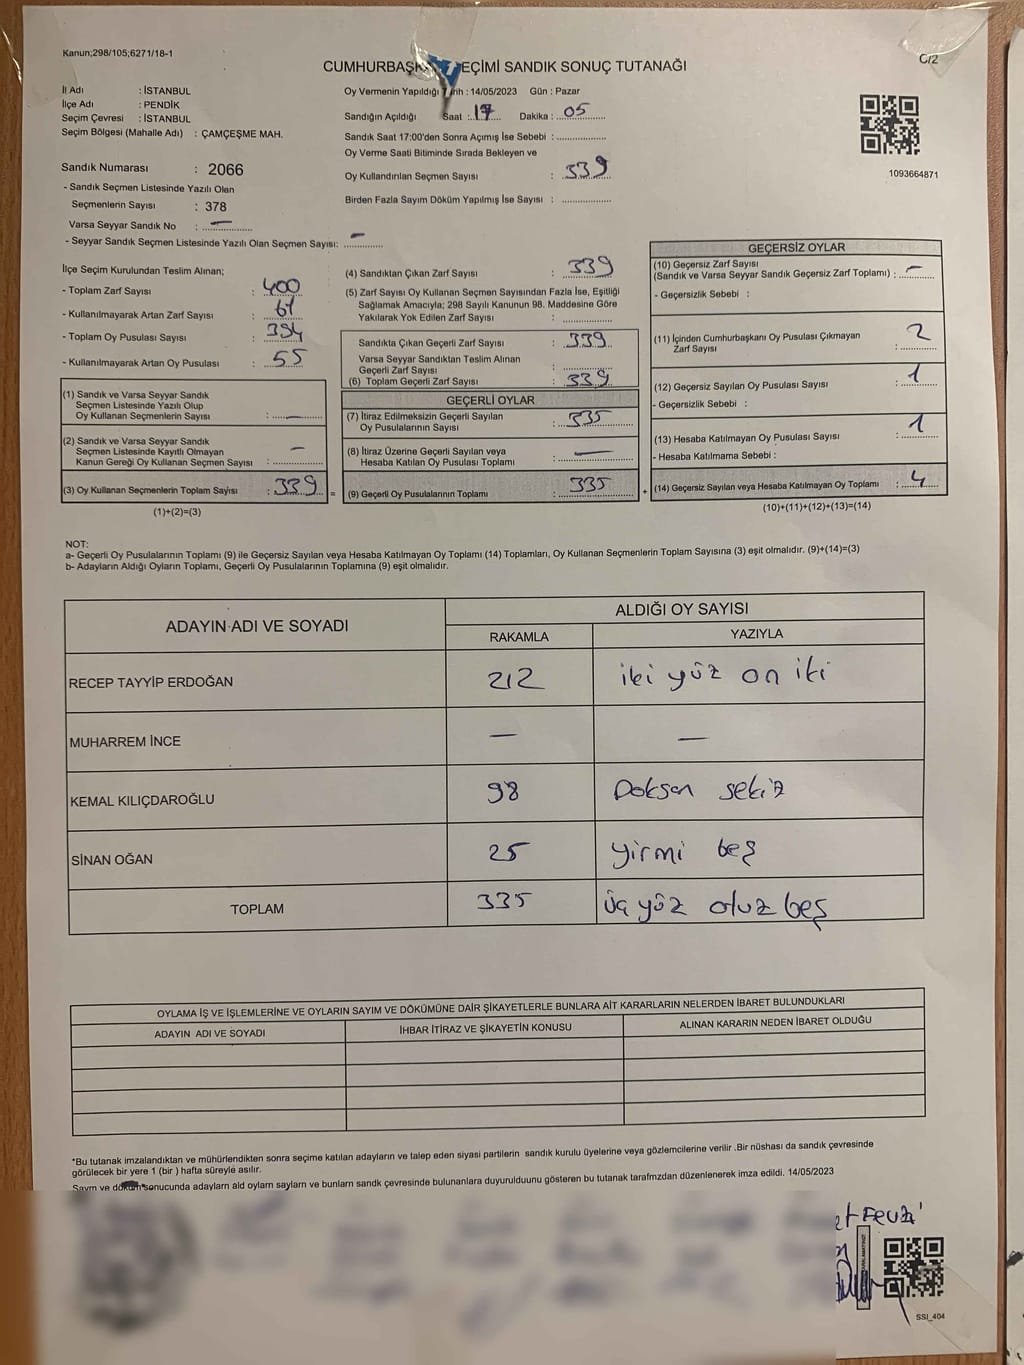 Kanun;298/105;6271/18-1
CUMHURBAŞK EÇİMİ SANDIK SONUÇ TUTANAĞI
C/2
İl Adı : İSTANBUL
İlçe Adı : PENDİK
Seçim Çevresi : İSTANBUL
Seçim Bölgesi (Mahalle Adı) : ÇAMÇEŞME MAH.
Sandık Numarası : 2066
- Sandık Seçmen Listesinde Yazılı Olan
Seçmenlerin Sayısı : 378
Varsa Seyyar Sandık No : —
- Seyyar Sandık Seçmen Listesinde Yazılı Olan Seçmen Sayısı: —
Oy Vermenin Yapıldığı rih : 14/05/2023 Gün : Pazar
Sandığın Açıldığı Saat : 17 Dakika : 05
Sandık Saat 17:00'den Sonra Açımış İse Sebebi :
Oy Verme Saati Bitiminde Sırada Bekleyen ve
Oy Kullandırılan Seçmen Sayısı : 339
Birden Fazla Sayım Döküm Yapılmış İse Sayısı :
1093664871
İlçe Seçim Kurulundan Teslim Alınan;
- Toplam Zarf Sayısı : 400
- Kullanılmayarak Artan Zarf Sayısı : 61
- Toplam Oy Pusulası Sayısı : 394
- Kullanılmayarak Artan Oy Pusulası : 55
(1) Sandık ve Varsa Seyyar Sandık
Seçmen Listesinde Yazılı Olup
Oy Kullanan Seçmenlerin Sayısı : —
(2) Sandık ve Varsa Seyyar Sandık
Seçmen Listesinde Kayıtlı Olmayan
Kanun Gereği Oy Kullanan Seçmen Sayısı : —
(3) Oy Kullanan Seçmenlerin Toplam Sayısı : 339 =
(1)+(2)=(3)
(4) Sandıktan Çıkan Zarf Sayısı : 339
(5) Zarf Sayısı Oy Kullanan Seçmen Sayısından Fazla İse, Eşitliği
Sağlamak Amacıyla; 298 Sayılı Kanunun 98. Maddesine Göre
Yakılarak Yok Edilen Zarf Sayısı :
Sandıkta Çıkan Geçerli Zarf Sayısı : 339
Varsa Seyyar Sandıktan Teslim Alınan
Geçerli Zarf Sayısı :
(6) Toplam Geçerli Zarf Sayısı : 339
GEÇERLİ OYLAR
(7) İtiraz Edilmeksizin Geçerli Sayılan
Oy Pusulalarının Sayısı : 335
(8) İtiraz Üzerine Geçerli Sayılan veya
Hesaba Katılan Oy Pusulası Toplamı : —
(9) Geçerli Oy Pusulalarının Toplamı : 335 +
GEÇERSİZ OYLAR
(10) Geçersiz Zarf Sayısı
(Sandık ve Varsa Seyyar Sandık Geçersiz Zarf Toplamı) : —
- Geçersizlik Sebebi :
(11) İçinden Cumhurbaşkanı Oy Pusulası Çıkmayan
Zarf Sayısı : 2
(12) Geçersiz Sayılan Oy Pusulası Sayısı : 1
- Geçersizlik Sebebi :
(13) Hesaba Katılmayan Oy Pusulası Sayısı : 1
- Hesaba Katılmama Sebebi :
(14) Geçersiz Sayılan veya Hesaba Katılmayan Oy Toplamı : 4
(10)+(11)+(12)+(13)=(14)
NOT:
a- Geçerli Oy Pusulalarının Toplamı (9) ile Geçersiz Sayılan veya Hesaba Katılmayan Oy Toplamı (14) Toplamları, Oy Kullanan Seçmenlerin Toplam Sayısına (3) eşit olmalıdır. (9)+(14)=(3)
b- Adayların Aldığı Oyların Toplamı, Geçerli Oy Pusulalarının Toplamına (9) eşit olmalıdır.
ADAYIN ADI VE SOYADI ALDIĞI OY SAYISI
RAKAMLA YAZIYLA
RECEP TAYYİP ERDOĞAN 212 iki yüz on iki
MUHARREM İNCE — —
KEMAL KILIÇDAROĞLU 98 Doksan sekiz
SİNAN OĞAN 25 yirmi beş
TOPLAM 335 üç yüz otuz beş
OYLAMA İŞ VE İŞLEMLERİNE VE OYLARIN SAYIM VE DÖKÜMÜNE DAİR ŞİKAYETLERLE BUNLARA AİT KARARLARIN NELERDEN İBARET BULUNDUKLARI
ADAYIN ADI VE SOYADI İHBAR İTİRAZ VE ŞİKAYETİN KONUSU ALINAN KARARIN NEDEN İBARET OLDUĞU
*Bu tutanak imzalandıktan ve mühürlendikten sonra seçime katılan adayların ve talep eden siyasi partilerin sandık kurulu üyelerine veya gözlemcilerine verilir .Bir nüshası da sandık çevresinde
görülecek bir yere 1 (bir ) hafta süreyle asılır.
Sayım ve döküm sonucunda adayların ald oyların sayları ve bunları sandk çevresinde bulunanlara duyurulduunu gösteren bu tutanak tarafmzdan düzenlenerek imza edildi. 14/05/2023
et Fevzi
SSI_404